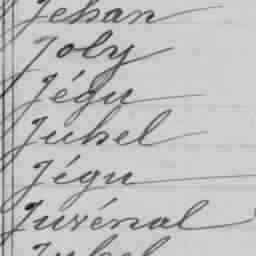 Jehan
Joly
Jégu
Juhel
Jégu
Juvénal
Juhel